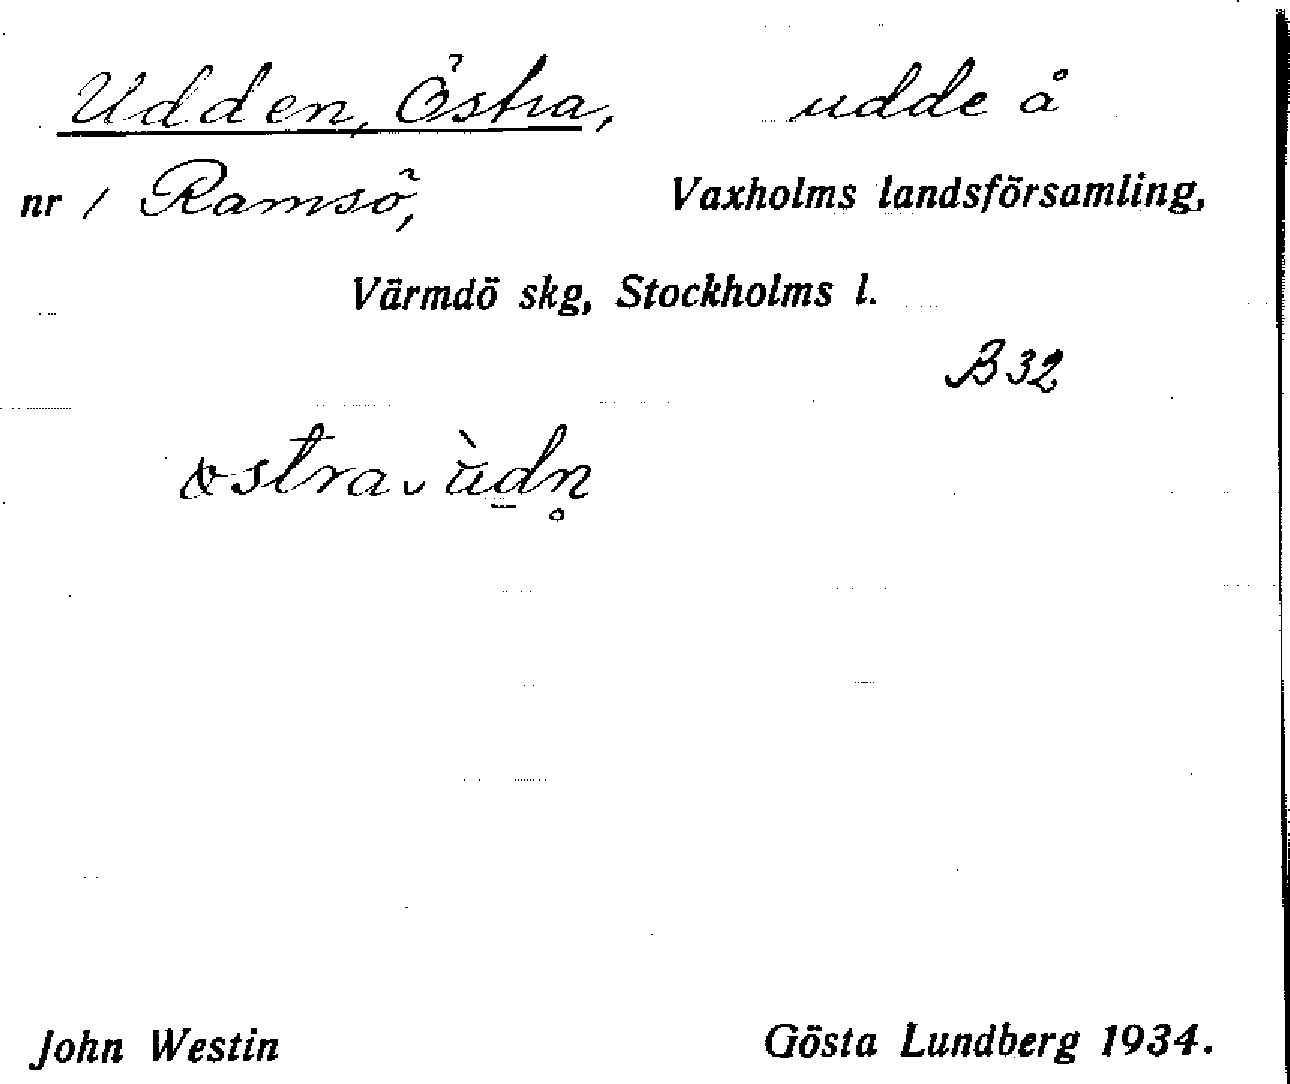 Udden, Östra, udde å
nr 1 Ramsö, Vaxholms landsförsamling,
Värmdö skg, Stockholms l.
B 32
John Westin Gösta Lundberg 1934.